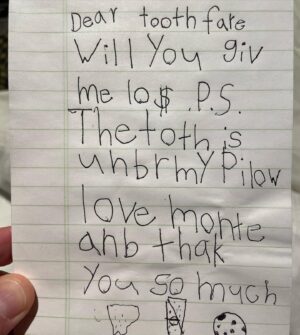 Dear tooth fare
Will You giv
me 10$ .P.S.
The toth is
unbr my Pilow
love monte
anb thak
You so much